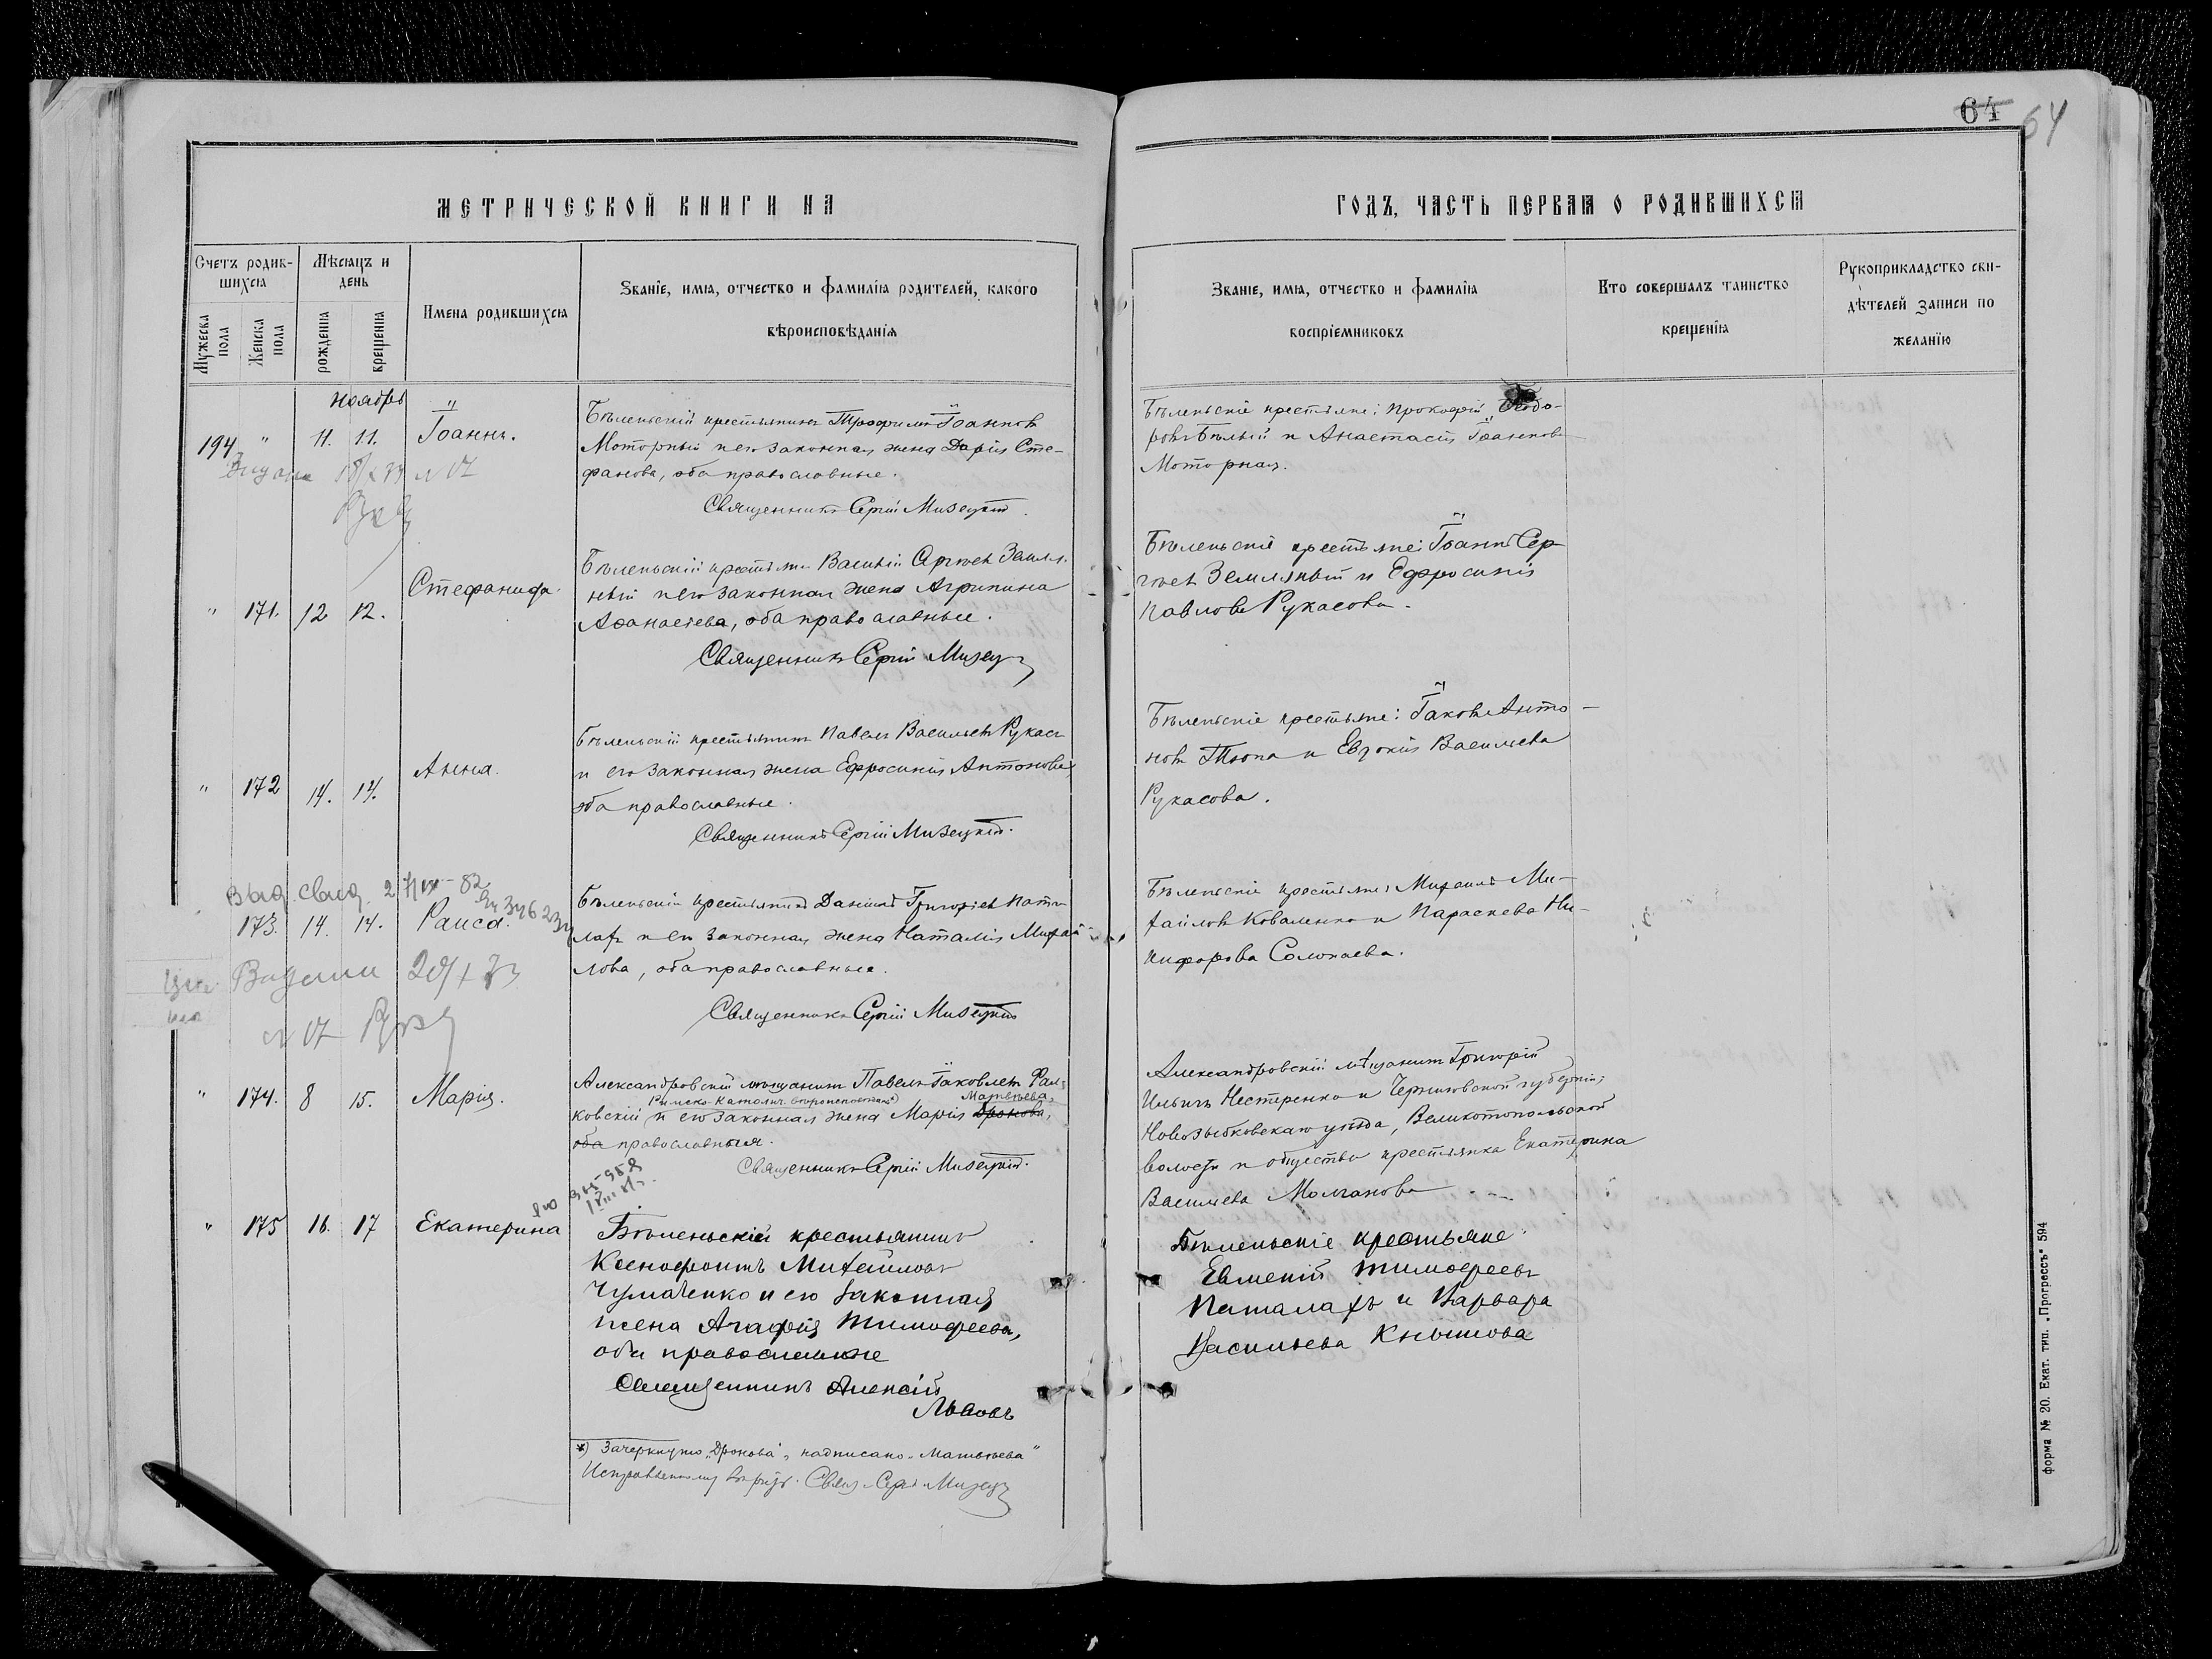 64
64
МЕТРИЧЕСКОЙ КНИГИ НА
ГОДЪ, ЧАСТЬ ПЕРВАЯ О РОДИВШИХСЯ
Счетъ родив-
шихся
Мѣсяцъ и
день
Имена родившихся
Званіе, имя, отчество и фамилія родителей, какого
вѣроисповѣданія
Мужеска
пола
Женска
пола
рожденія
крещенія
Званіе, имя, отчество и фамилія
воспріемниковъ
Кто совершалъ таинство
крещенія
Рукоприкладство сви-
дѣтелей записи по
желанію
Ноябрь
194 " 11. 11. Іоаннъ.
Бѣленьскій крестьянинъ Трофимъ Іоанновъ
Моторный и его законная жена Дарія Сте-
фанова, оба православные.
Священникъ Сергій Мизецкій.
Бѣленьскіе крестьяне: Прокофій Ѳеодо-
ровъ Бѣлый и Анастасія Іоаннова
Моторная.
" 171. 12 12. Стефанида.
Бѣленьскій крестьян. Василій Сергѣевъ Землян-
ный и его законная жена Агрипина
Аѳанасіева, оба православные.
Священникъ Сергій Мизец
Бѣленьскіе крестьяне: Іоаннъ Сер-
гѣевъ Земляный и Ефросинія
Павлова Рукасова.
" 172 14. 14. Анна.
Бѣленьскій крестьянинъ Павелъ Васильевъ Рукасъ
и его законная жена Ефросинія Антонова
оба православные.
Священникъ Сергій Мизецкій.
Бѣленьскіе крестьяне: Іаковъ Анто-
новъ Тюпа и Евдокія Васильева
Рукасова.
Выд. свид. 2/IX-82
173. 14. 14. Раиса.
Выдана 20/X 33
Бѣленьскій крестьянинъ Даніилъ Григоріевъ Пата-
лахъ и его законная жена Наталія Михаи-
лова, оба православные.
Священникъ Сергій Мизецкій
Бѣленьскіе крестьяне: Михаилъ Ми-
хаиловъ Коваленко и Параскева Ни-
кифорова Солопаева.
" 174. 8 15. Марія.
Александровскій мѣщанинъ Павелъ Іаковлевъ Рал-
Римско-Католич. вѣроисповѣданія Матвѣева
ковскій и его законная жена Марія Дронова,
оба православныя.
Священникъ Сергій Мизецкій.
Александровскій мѣщанинъ Григорій
Ильичъ Нестеренко и Черниговской губерніи,
Новозыбковскаго уѣзда, Великотопольской
волости и общества крестьянка Екатерина
Васильева Молчанова
" 175 16. 17 Екатерина
Бѣленьскій крестьянинъ
Ксенофонтъ Михайловъ
Чумаченко и его законная
жена Агафія Тимофеева,
оба православные
Священникъ Алексій
Львовъ
Бѣленьскіе крестьяне
Евменій Тимофеевъ
Паталахъ и Варвара
Васильева Кнышова
*) Зачеркнуто „Дронова", надписано „Матвѣева"
Исправленному вѣрить. Свящ. Сергій Мизец
форма № 20. Екат. тип. „Прогрессъ" 594